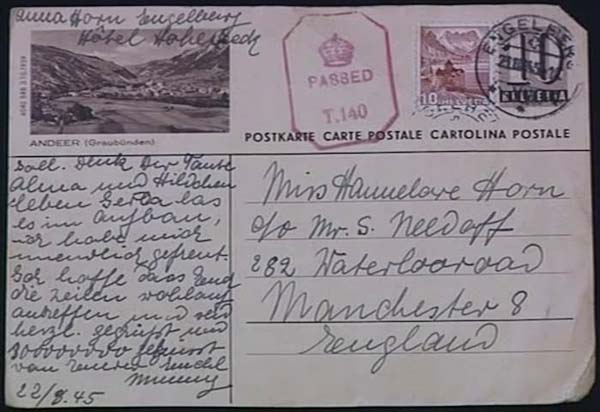 Anna Horn Engelberg
Hôtel Hoheneck
ANDEER (Graubünden)
PASSED
T.140
10
HELVETIA
ENGELBERG
10
HELVETIA
POSTKARTE CARTE POSTALE CARTOLINA POSTALE
soll. Denk Dir Tante
Alma und Hildchen
leben Gerda las
es im Aufbau,
ich habe mich
unendlich gefreut.
Ich hoffe dass Euch
die Zeilen wohlauf
antreffen und seid
herzl. gegrüsst und
30000000 geküsst
von Eurer
Mummy
22/8.45
Miss Hannelore Horn
c/o Mr. S. Needoff
282 Waterlooroad
Manchester 8
England